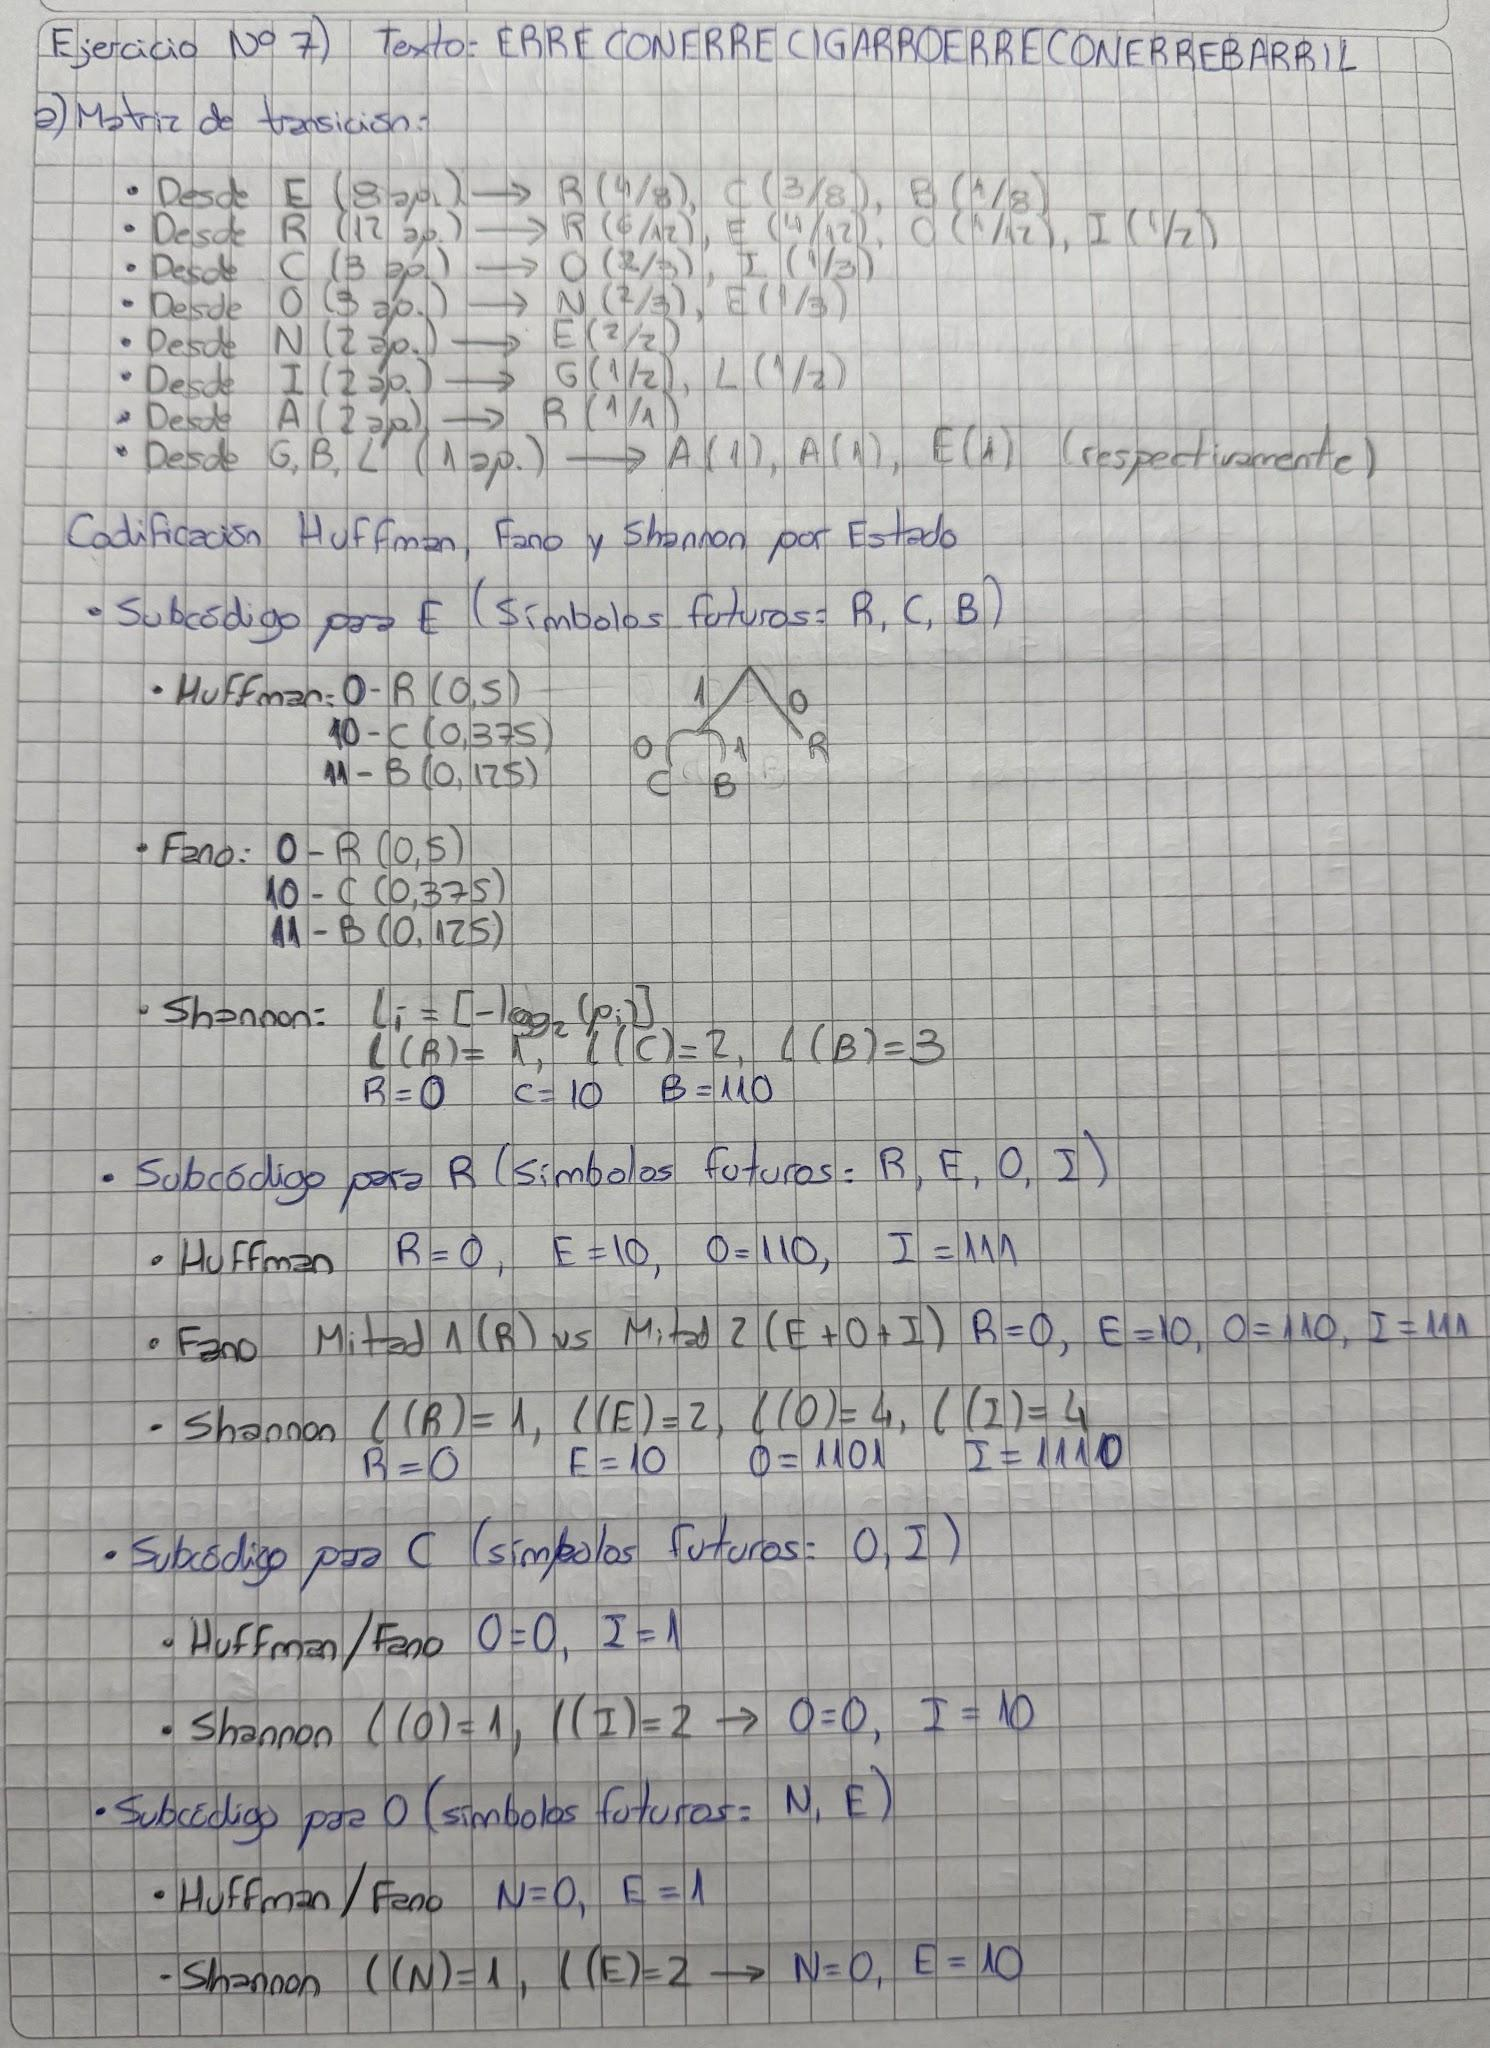 Ejercicio Nº 7) Texto: ERRECONERRECIGARROERRECONERREBARRIL
a) Matriz de transición:
• Desde E (8 ap.) → R (4/8), C (3/8), B (1/8)
• Desde R (12 ap.) → R (6/12), E (4/12), O (1/12), I (1/2)
• Desde C (3 ap.) → O (2/3), I (1/3)
• Desde O (3 ap.) → N (2/3), E (1/3)
• Desde N (2 ap.) → E (2/2)
• Desde I (2 ap.) → G (1/2), L (1/2)
• Desde A (2 ap) → R (1/1)
• Desde G, B, L (1 ap.) → A (1), A (1), E (1) (respectivamente)
Codificación Huffman, Fano y Shannon por Estado
• Subcódigo para E (Símbolos futuros: R, C, B)
• Huffman: 0 - R (0,5)
10 - C (0,375)
11 - B (0,125)
1 0
0 1 R
C B
• Fano: 0 - R (0,5)
10 - C (0,375)
11 - B (0,125)
• Shannon: li = [-log2 (pi)]
l(R) = 1, l(C) = 2, l(B) = 3
R = 0 C = 10 B = 110
• Subcódigo para R (símbolos futuros: R, E, O, I)
• Huffman R = 0, E = 10, O = 110, I = 111
• Fano Mitad 1 (R) vs Mitad 2 (E + O + I) R = 0, E = 10, O = 110, I = 111
• Shannon l(R) = 1, l(E) = 2, l(O) = 4, l(I) = 4
R = 0 E = 10 O = 1101 I = 1110
• Subcódigo para C (símbolos futuros: O, I)
• Huffman/Fano O = 0, I = 1
• Shannon l(O) = 1, l(I) = 2 → O = 0, I = 10
• Subcódigo para O (símbolos futuros: N, E)
• Huffman/Fano N = 0, E = 1
- Shannon l(N) = 1, l(E) = 2 → N = 0, E = 10